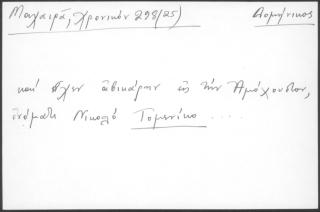 Μαχαιρά, Χρονικόν 298(25) Δομήνικος
καί εἶχεν ἀβικάρην εἰς τήν Ἀμόχουστον,
ὀνόματι Νικολό Τομενίκο ....